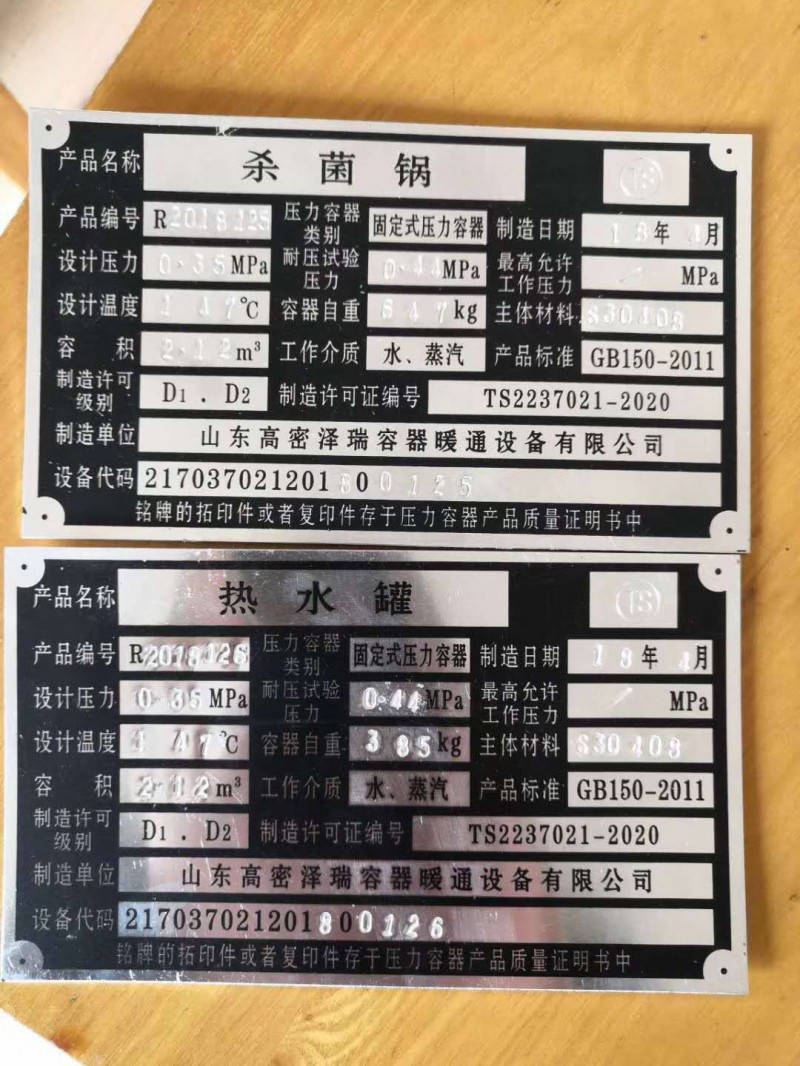 产品名称 杀菌锅 TS
产品编号 R2018125 压力容器类别 固定式压力容器 制造日期 18年4月
设计压力 0.35MPa 耐压试验压力 0.44MPa 最高允许工作压力 / MPa
设计温度 147℃ 容器自重 547kg 主体材料 S30408
容积 2.12m³ 工作介质 水、蒸汽 产品标准 GB150-2011
制造许可级别 D1.D2 制造许可证编号 TS2237021-2020
制造单位 山东高密泽瑞容器暖通设备有限公司
设备代码 217037021201800125
铭牌的拓印件或者复印件存于压力容器产品质量证明书中
产品名称 热水罐 TS
产品编号 R2018126 压力容器类别 固定式压力容器 制造日期 18年4月
设计压力 0.35MPa 耐压试验压力 0.44MPa 最高允许工作压力 / MPa
设计温度 147℃ 容器自重 385kg 主体材料 S30408
容积 2.12m³ 工作介质 水、蒸汽 产品标准 GB150-2011
制造许可级别 D1.D2 制造许可证编号 TS2237021-2020
制造单位 山东高密泽瑞容器暖通设备有限公司
设备代码 217037021201800126
铭牌的拓印件或者复印件存于压力容器产品质量证明书中